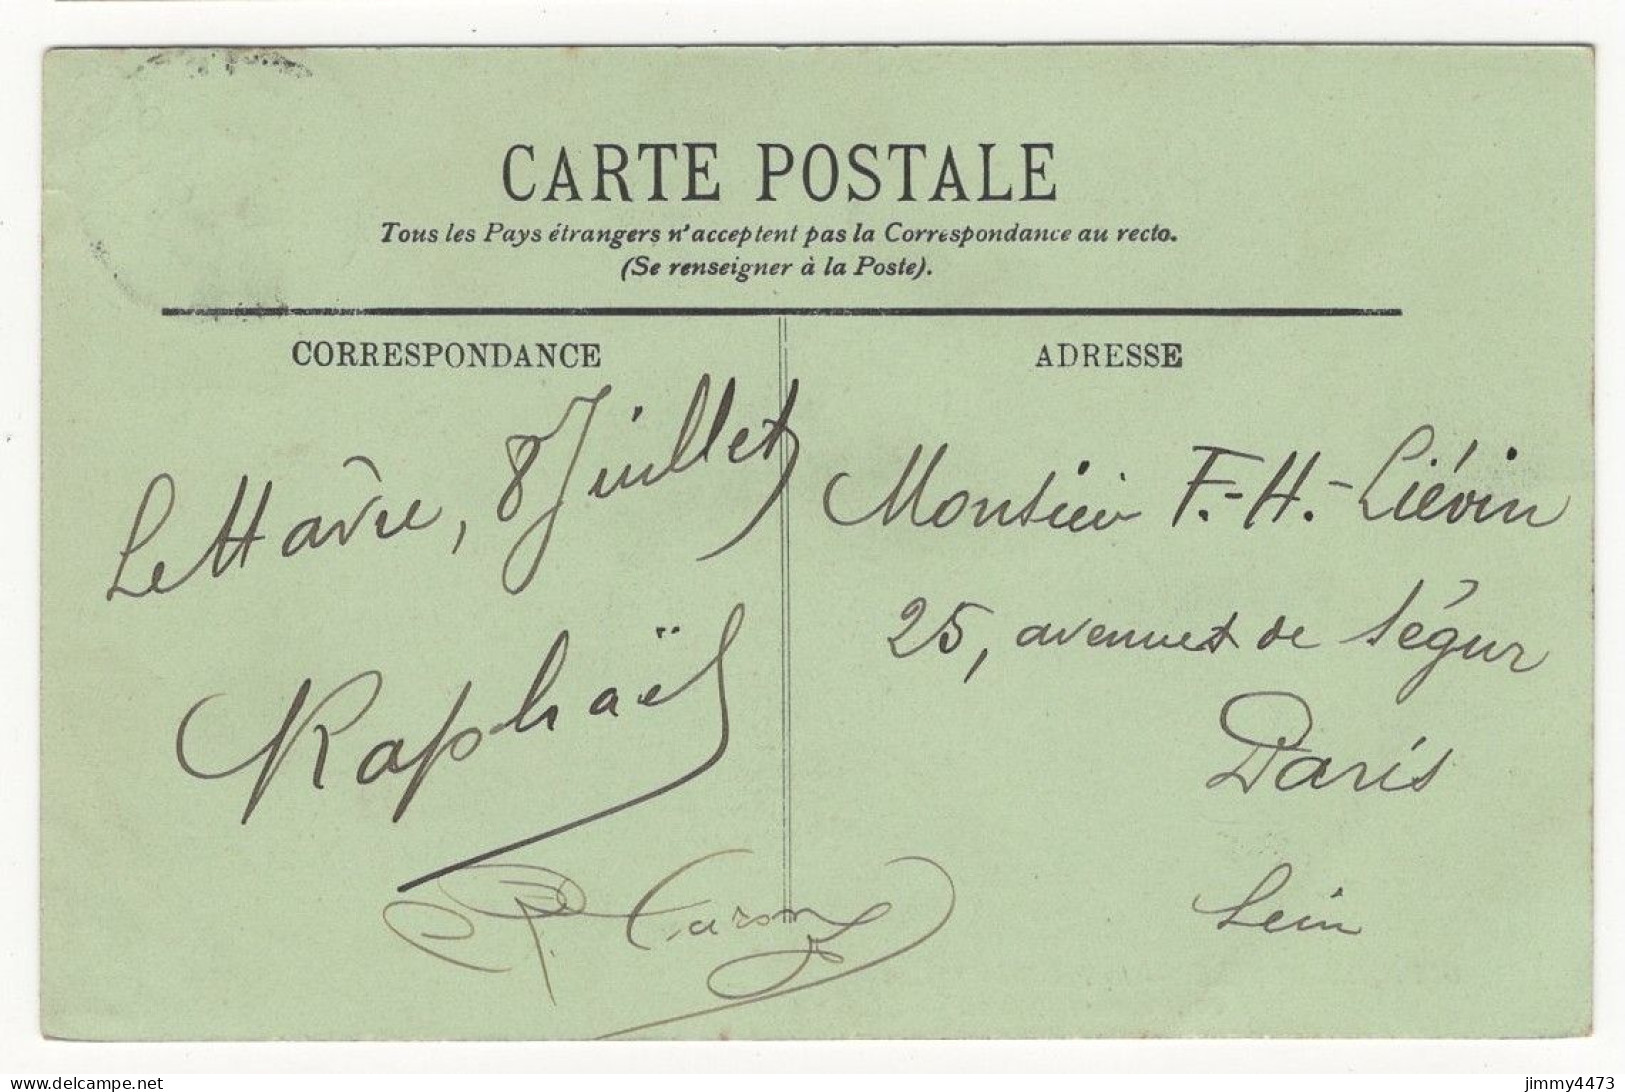 CARTE POSTALE
Tous les Pays étrangers n'acceptent pas la Correspondance au recto.
(Se renseigner à la Poste).
CORRESPONDANCE
ADRESSE
Le Hâvre, 8 Juillet
Raphaël
R. Caron
Monsieur F.-H.-Liévin
25, avenue de Ségur
Paris
Sein
delcampe.net
jimmy4473